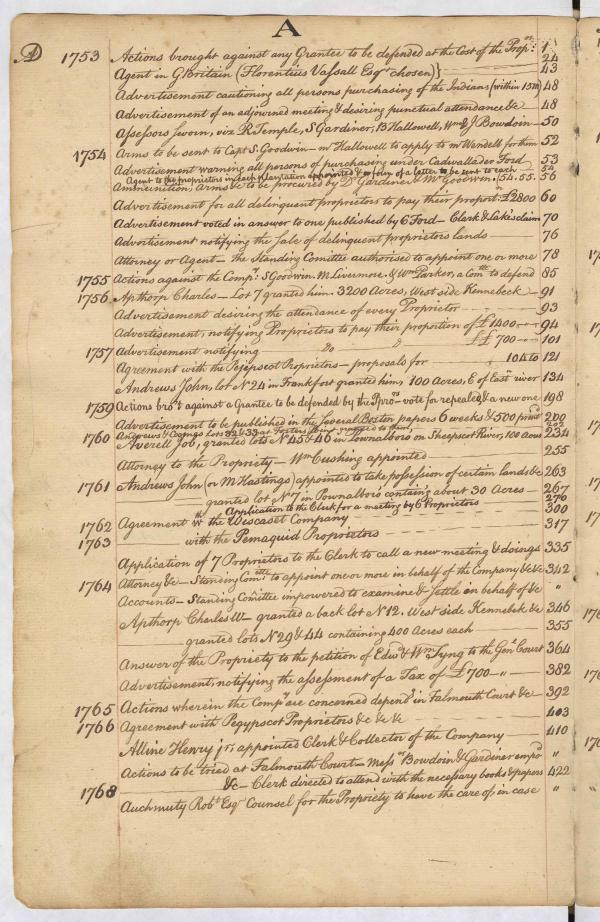 A
D 1753 Actions brought against any Grantee to be defended at the Cost of the Propors: 1
24
Agent in G Britain (Florentius Vassall Esqr chosen)} 43
Advertisement cautioning all persons purchasing of the Indians (within 15m) 48
Advertisement of an adjourned meeting & desiring punctual attendance &c 48
Assessors sworn, viz R Temple, S Gardiner, B Hallowell, Wm & J Bowdoin 50
1754 Arms to be sent to Capt S. Goodwin - mr Hallowell to apply to mr Wendell for them 52
Advertisement warning all persons of purchasing under Cadwallader Ford 53
Agent to the proprietors in each plantation appointed & copy of a letter to be sent to each 54
Ammunition, Arms &c to be procured by Dr Gardiner & Mr Goodwin. 54. 55. 56
Advertisement for all delinquent proprietors to pay their proportn £2800 60
Advertisement voted in answer to one published by C Ford - Clark & Lake's claim 70
Advertisement notifying the Sale of delinquent proprietors lands 76
Attorney or Agent - the Standing Comittee authorised to appoint one or more 78
1755 Actions against the Compy: S Goodwin. M. Livermore. & Wm Parker, a Comtee to defend 85
1756 Apthorp Charles - Lot 7 granted him. 3200 Acres, West side Kennebeck 91
Advertisement desiring the attendance of every Proprietor 93
Advertisement, notifying Proprietors to pay their proportion of £1400 94
1757 Advertisement notifying Do £700 101
Agreement with the Pejepscot Proprietors - proposals for 104 to 121
Andrews John, lot N 24 in Frankfort granted him, 100 Acres, E of Eastn river 134
1759 Actions brot against a Grantee to be defended by the Proors - vote for repealed & a new one 198
Advertisement to be published in the Several Boston papers 6 weeks & 500 printd 200
Andrews & Coopngs Lots 32 & 33 at Fosters being regranted to them 202
1760 Averell Job, granted lots N 45 & 46 in Pownalboro on Sheepscot River, 100 Acres 234
Attorney to the Propriety - Wm Cushing appointed 255
1761 Andrews John (or M Hastings) appointed to take possession of certain lands &c 263
granted lot N 7 in Pownalboro containg about 30 Acres 267
Application to the Clerk for a meeting by 6 Proprietors 270
1762 Agreement wth the Wiscaset Company 300
1763 with the Pemaquid Proprietors 317
Application of 7 Proprietors to the Clerk to call a new meeting & doings 335
1764 Attorney &c - Standing Comttee to appoint one or more in behalf of the Company &c &c 342
Accounts - Standing Comittee impowered to examine & settle in behalf of &c "
Apthorp Charles W - granted a back lot N 12. West side Kennebek &c 346
granted lots N 29 & 44 containing 400 Acres each 355
Answer of the Propriety to the petition of Edwd & Wm Tyng to the Genl Court 364
Advertisement, notifying the assessment of a Tax of £700 382
1765 Actions wherein the Compy are concerned dependg in Falmouth Court &c 392
1766 Agreement with Pegypscot Proprietors &c &c &c 403
Alline Henry jr: appointed Clerk & Collector of the Company 410
Actions to be tried at Falmouth Court - Messrs Bowdoin & Gardiner empod "
&c - Clerk directed to attend with the necessary books & papers 422
1768 Auchmuty Robt Esqr Counsel for the Propriety to have the care of, in case "